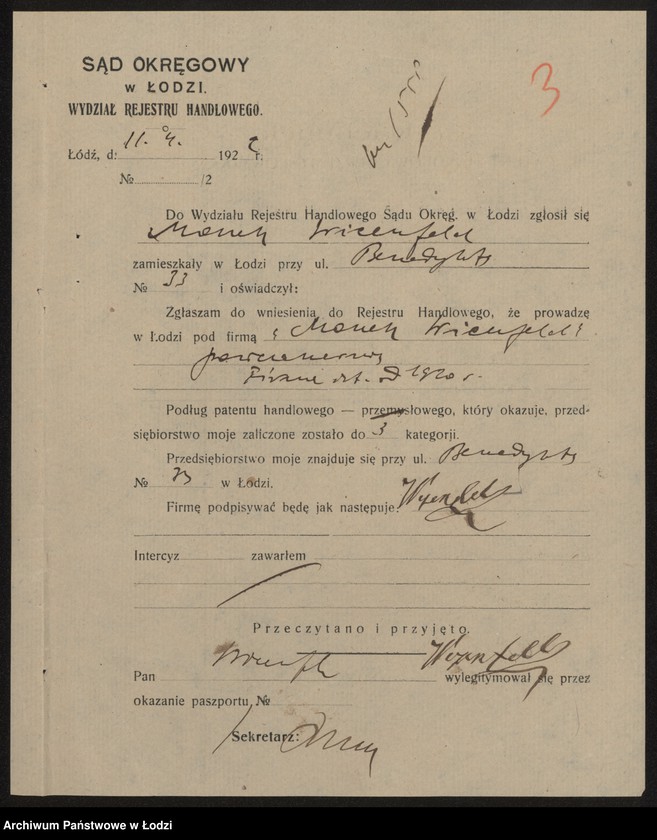 3
SĄD OKRĘGOWY
w ŁODZI.
WYDZIAŁ REJESTRU HANDLOWEGO.
Łódź, d: 11. 4. 1922 r.
№ /2
Do Wydziału Rejestru Handlowego Sądu Okręg. w Łodzi zgłosił się
Monek Wicenfeld
zamieszkały w Łodzi przy ul. Benedykta
№ 33 i oświadczył:
Zgłaszam do wniesienia do Rejestru Handlowego, że prowadzę
w Łodzi pod firmą „Monek Wicenfeld"
Firma od 1920 r.
Podług patentu handlowego — przemysłowego, który okazuje, przed-
siębiorstwo moje zaliczone zostało do 3 kategorji.
Przedsiębiorstwo moje znajduje się przy ul. Benedykta
№ 33 w Łodzi.
Firmę podpisywać będę jak następuje:
Intercyz zawarłem
Przeczytano i przyjęto.
Pan wylegitymował się przez
okazanie paszportu №
Sekretarz:
Archiwum Państwowe w Łodzi